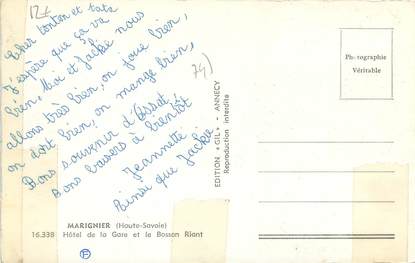 12+
Cher tonton et tata
J'espère que ça va
bien, Moi et Jackie nous
allons très bien, on joue bien,
on dort bien, on mange bien,
Bons souvenir d'Assat
Bons baisers à bientôt
Jeannette
Ainsi que Jackie
74)
MARIGNIER (Haute-Savoie)
16.338 Hôtel de la Gare et le Bosson Riant
EDITION « GIL » - ANNECY
Reproduction interdite
Photographie
Véritable